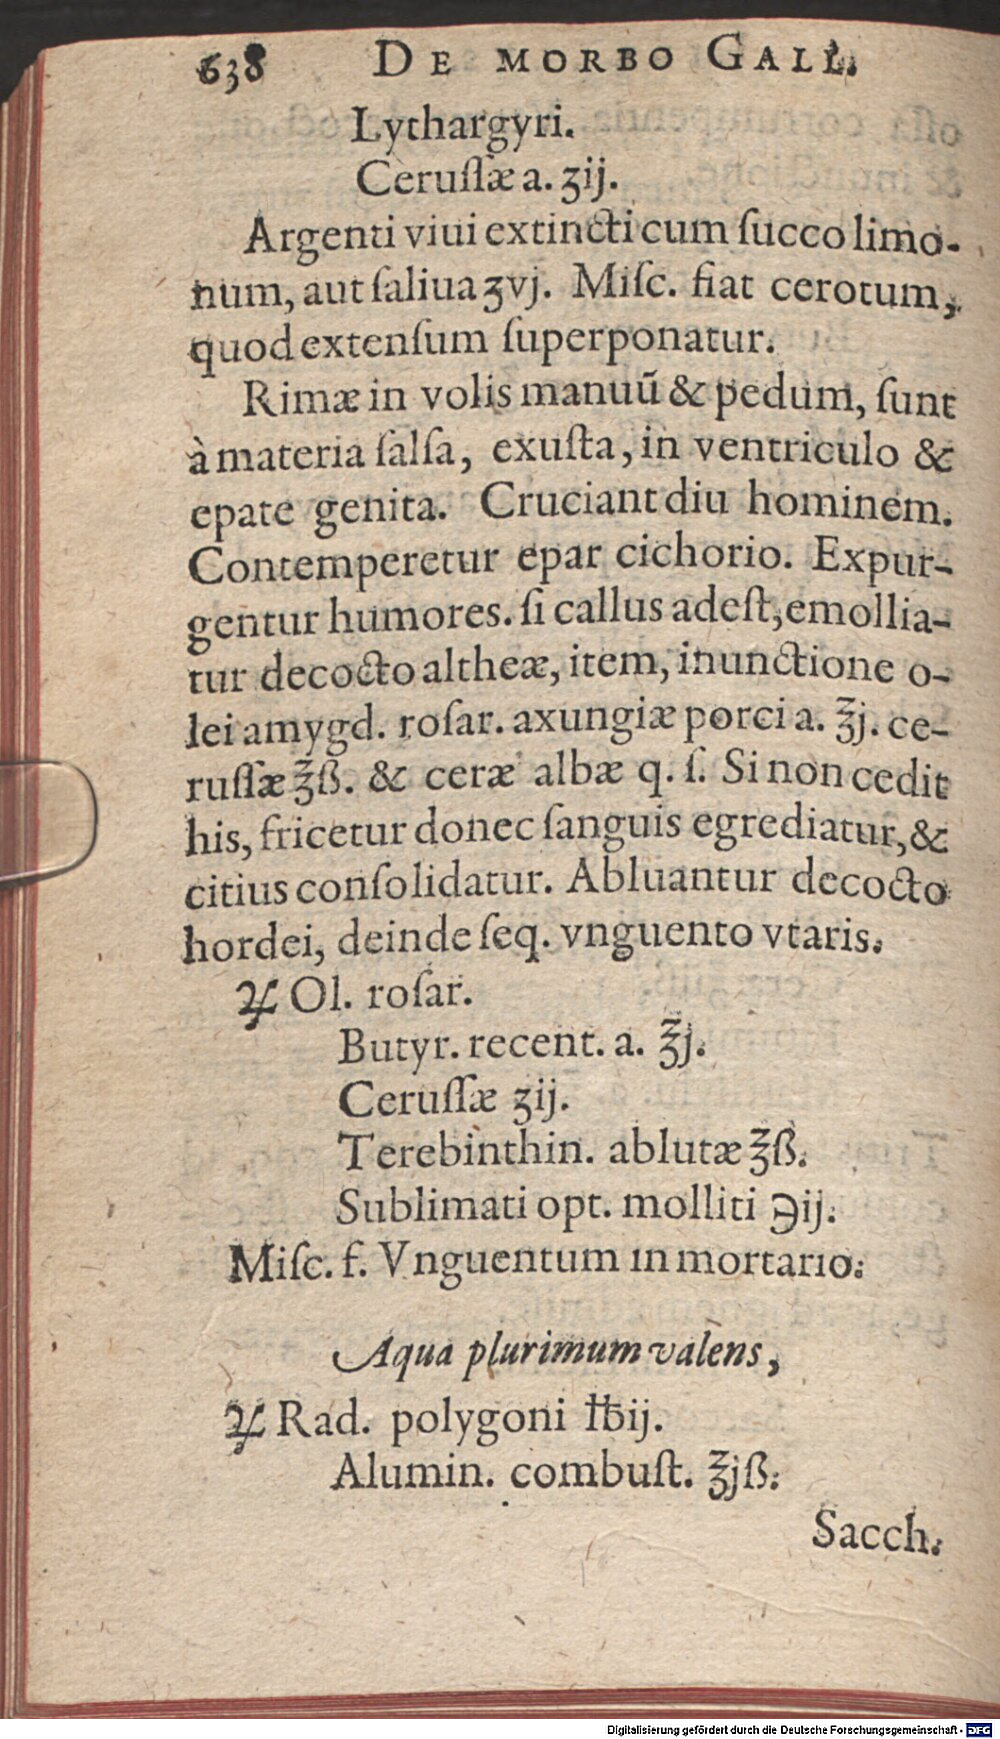 638 DE MORBO GALL.
Lythargyri.
Ceruſſæ a. ʒij.
Argenti viui extincti cum ſucco limo-
num, aut ſaliua ʒvj. Miſc. fiat cerotum,
quod extenſum ſuperponatur.
Rimæ in volis manuū & pedum, ſunt
à materia ſalſa, exuſta, in ventriculo &
epate genita. Cruciant diu hominem.
Contemperetur epar cichorio. Expur-
gentur humores. ſi callus adeſt, emollia-
tur decocto altheæ, item, inunctione o-
lei amygd. roſar. axungiæ porci a. ℥j. ce-
ruſſæ ℥ß. & ceræ albæ q. ſ. Si non cedit
his, fricetur donec ſanguis egrediatur, &
citius conſolidatur. Abluantur decocto
hordei, deinde ſeq. vnguento vtaris.
♃ Ol. roſar.
Butyr. recent. a. ℥j.
Ceruſſæ ʒij.
Terebinthin. ablutæ ℥ß.
Sublimati opt. molliti ℈ij.
Miſc. f. Vnguentum in mortario.
Aqua plurimum valens,
♃ Rad. polygoni ℔ij.
Alumin. combuſt. ℥jß.
Sacch.
Digitalisierung gefördert durch die Deutsche Forschungsgemeinschaft - DFG